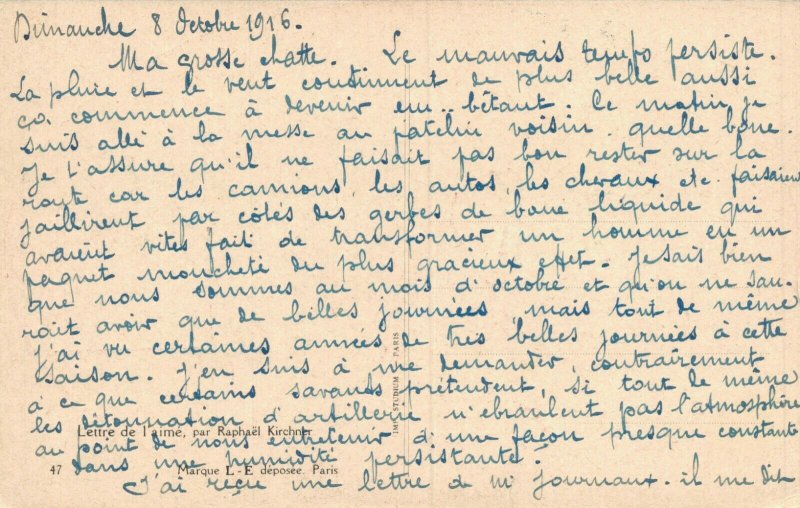 Dimanche 8 Octobre 1916.
Ma grosse chatte. Le mauvais temps persiste.
La pluie et le vent continuent de plus belle aussi
ça commence à devenir em..bêtant. Ce matin je
suis allé à la messe au patelin voisin. quelle boue.
Je t'assure qu'il ne faisait pas bon rester sur la
route car les camions, les autos, les chevaux etc. faisaient
jaillirent par côtés des gerbes de boue liquide qui
avaient vites fait de transformer un homme en un
paquet moucheté du plus gracieux effet. Je sais bien
que nous sommes au mois d'octobre et qu'on ne sau-
rait avoir que de belles journées, mais tout de même
j'ai vu certaines années de très belles journées à cette
saison. J'en suis à me demander, contrairement
à ce que certains savants prétendent, si tout de même
les détonnation d'artillerie n'ébranlent pas l'atmosphère
au point de nous entretenir d'une façon presque constante
dans une humidité persistante?
J'ai reçue une lettre de mr Journaux. il me dit
Lettre de l'aimé, par Raphaël Kirchner
47 Marque L-E déposée. Paris
IMP. STUDIUM PARIS